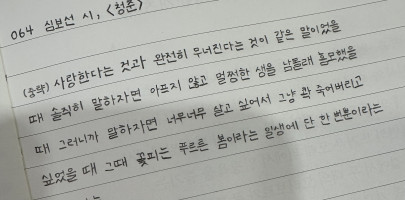 064 심보선 시, <청춘>
(중략) 사랑한다는 것과 완전히 무너진다는 것이 같은 말이었을
때 솔직히 말하자면 아프지 않고 멀쩡한 생을 남몰래 흠모했을
때 그러니까 말하자면 너무너무 살고 싶어서 그냥 콱 죽어버리고
싶었을 때 그때 꽃피는 푸르른 봄이라는 일생에 단 한 번뿐이라는